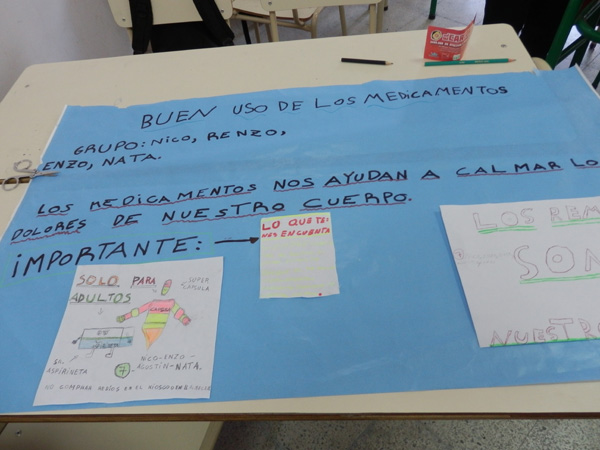 BUEN USO DE LOS MEDICAMENTOS
GRUPO: NICO, RENZO,
ENZO, NATA.
LOS MEDICAMENTOS NOS AYUDAN A CALMAR LO
DOLORES DE NUESTRO CUERPO.
IMPORTANTE:
LO QUE TE-
NES EN CUENTA
SOLO PARA
ADULTOS
SUPER
CAPSULA
LA
ASPIRINETA
NICO-ENZO-
AGUSTIN-NATA.
NO COMPRAR
EN EL KIOSCO
LOS REM
SON
NUESTRO